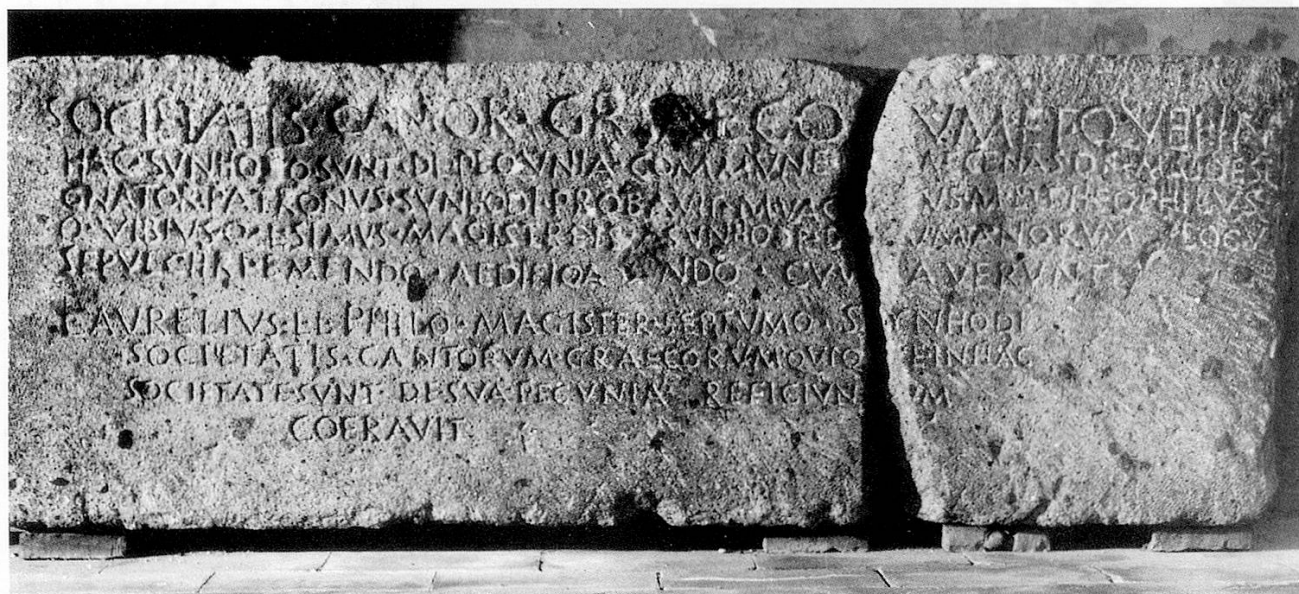 SOCIETATIS · CANTOR · GRAECO VM · ET · QVEI IN
HAC · SVNHODO SVNT · DE PEQVNIA COMMVNE
PATRONVS · SVNHODI PROBAVIT · M · VAC
Q · VIBIVS · Q · L · SIMVS · MAGISTREIS · SVNHODI · DE VMIANORVM LOCV
SEPVLCHRI EMENDO · AEDIFICANDO · CVV AVERVNT
L · AVRELIVS · L · L · PHILO · MAGISTER · SEPTVMO · SYNHODI
SOCIETATIS · CANTORVM · GRAECORVM QVIQVE IN HAC
SOCIETATE SVNT · DE SVA PECVNIA REFICIVN VM
COERAVIT